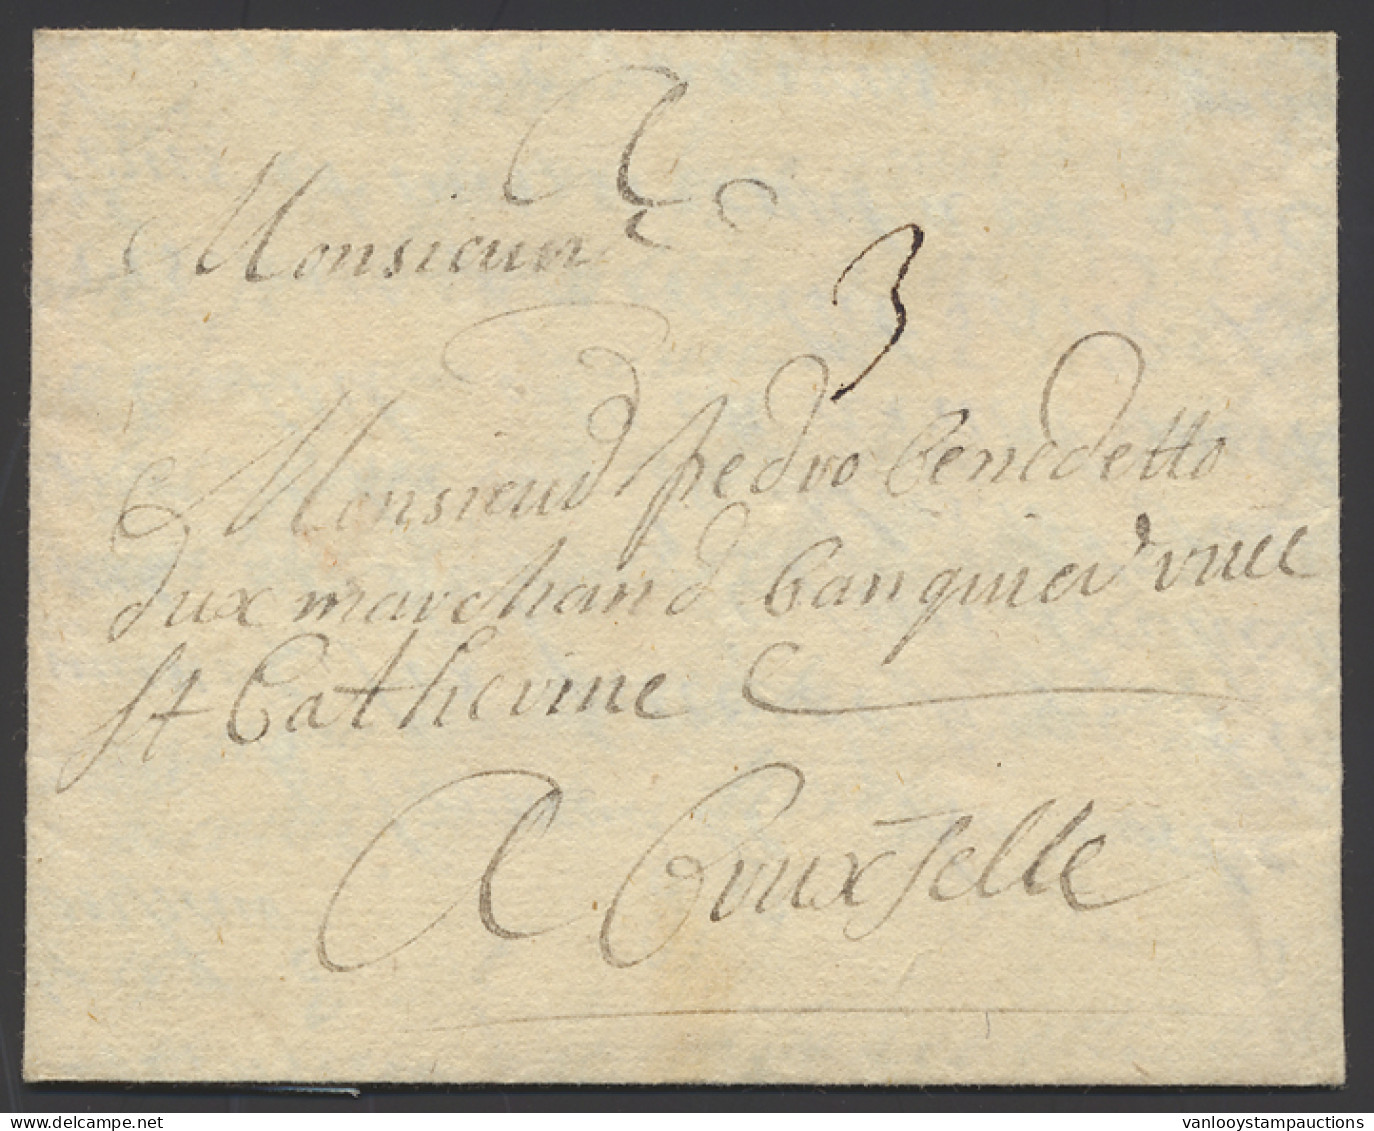 A
Monsieur
3
Monsieur pedro benedetto
dux marchand banquier
St Catherine
A bruxselle
vanlooystampauctions